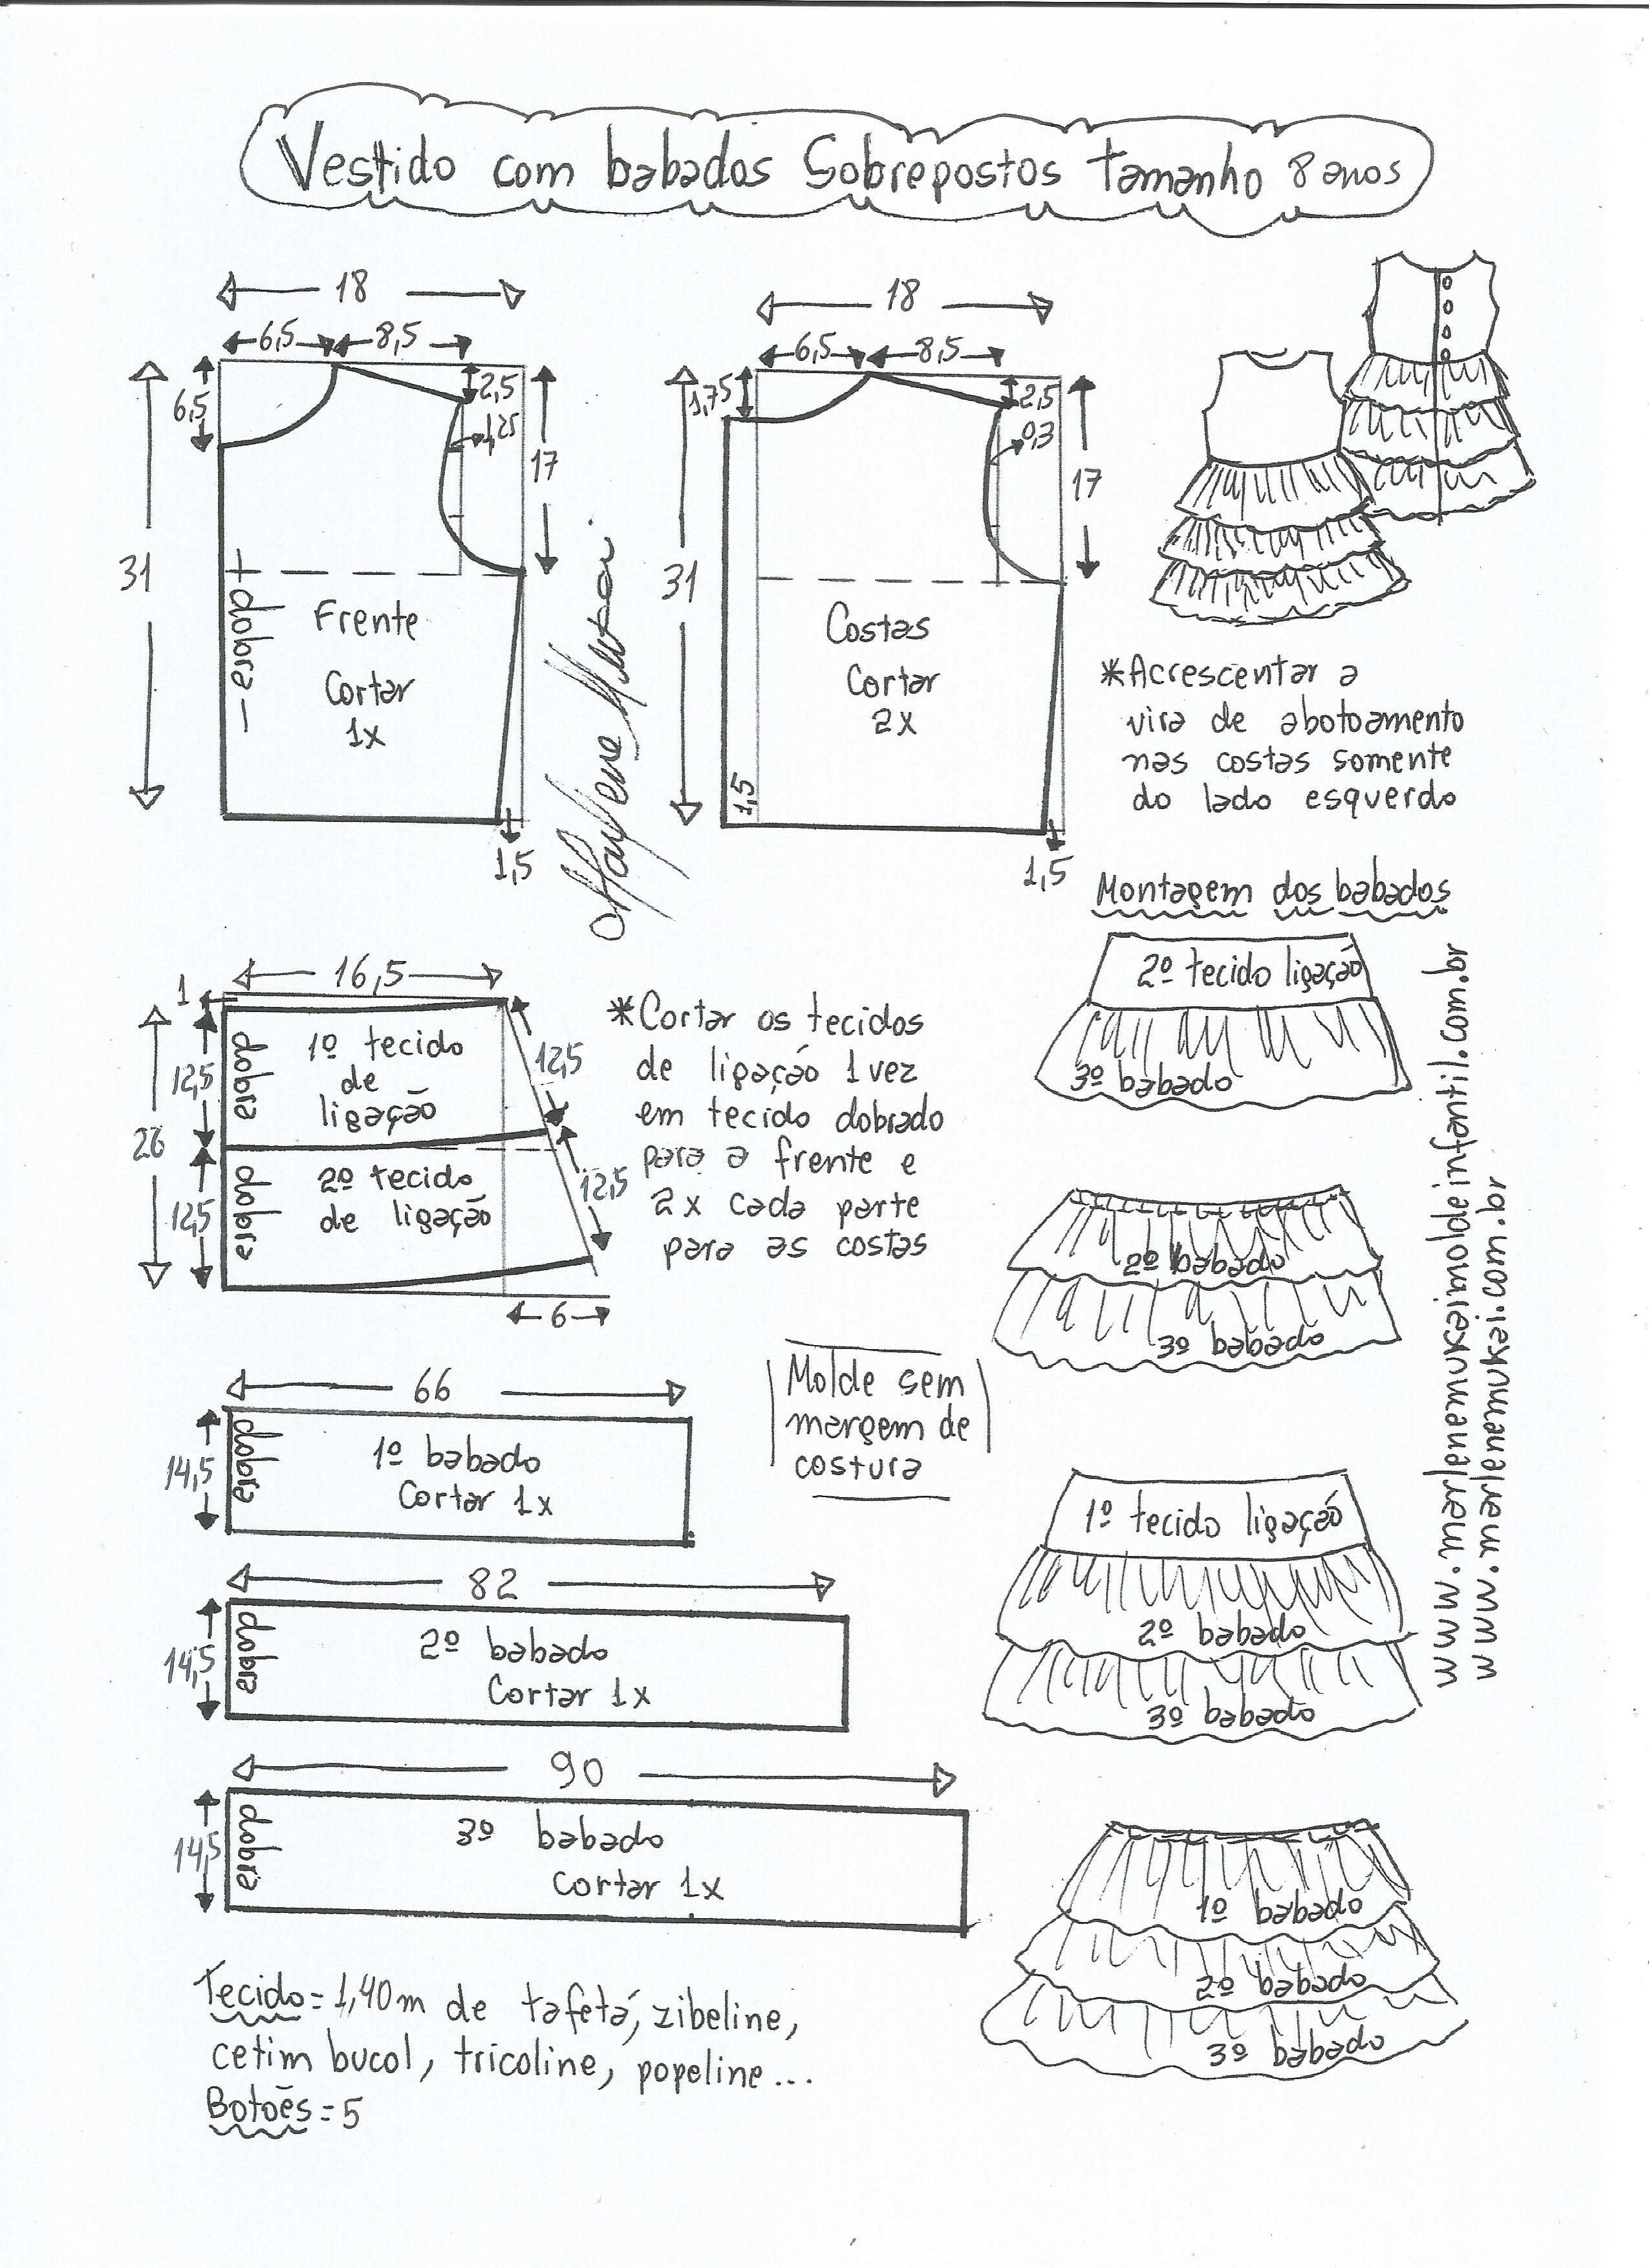 Vestido com babados Sobrepostos tamanho 8 anos
18
6,5
8,5
6,5
2,5
1,25
17
31
dobra
Frente
Cortar
1x
1,5
18
6,5
8,5
1,75
2,5
0,3
17
31
Costas
Cortar
2x
1,5
1,5
*Acrescentar a
vira de abotoamento
nas costas somente
do lado esquerdo
16,5
1
12,5
12,5
26
dobra
1º tecido
de
ligação
12,5
dobra
2º tecido
de ligação
12,5
6
*Cortar os tecidos
de ligação 1 vez
em tecido dobrado
para a frente e
2x cada parte
para as costas
Molde sem
margem de
costura
66
14,5
dobra
1º babado
Cortar 1x
82
14,5
dobra
2º babado
Cortar 1x
90
14,5
dobra
3º babado
Cortar 1x
Tecido=1,40m de tafetá, zibeline,
cetim bucol, tricoline, popeline...
Botões=5
Montagem dos babados
2º tecido ligação
3º babado
2º babado
3º babado
1º tecido ligação
2º babado
3º babado
1º babado
2º babado
3º babado
www.marlenemukaimoldeinfantil.com.br
www.marlenemukai.com.br